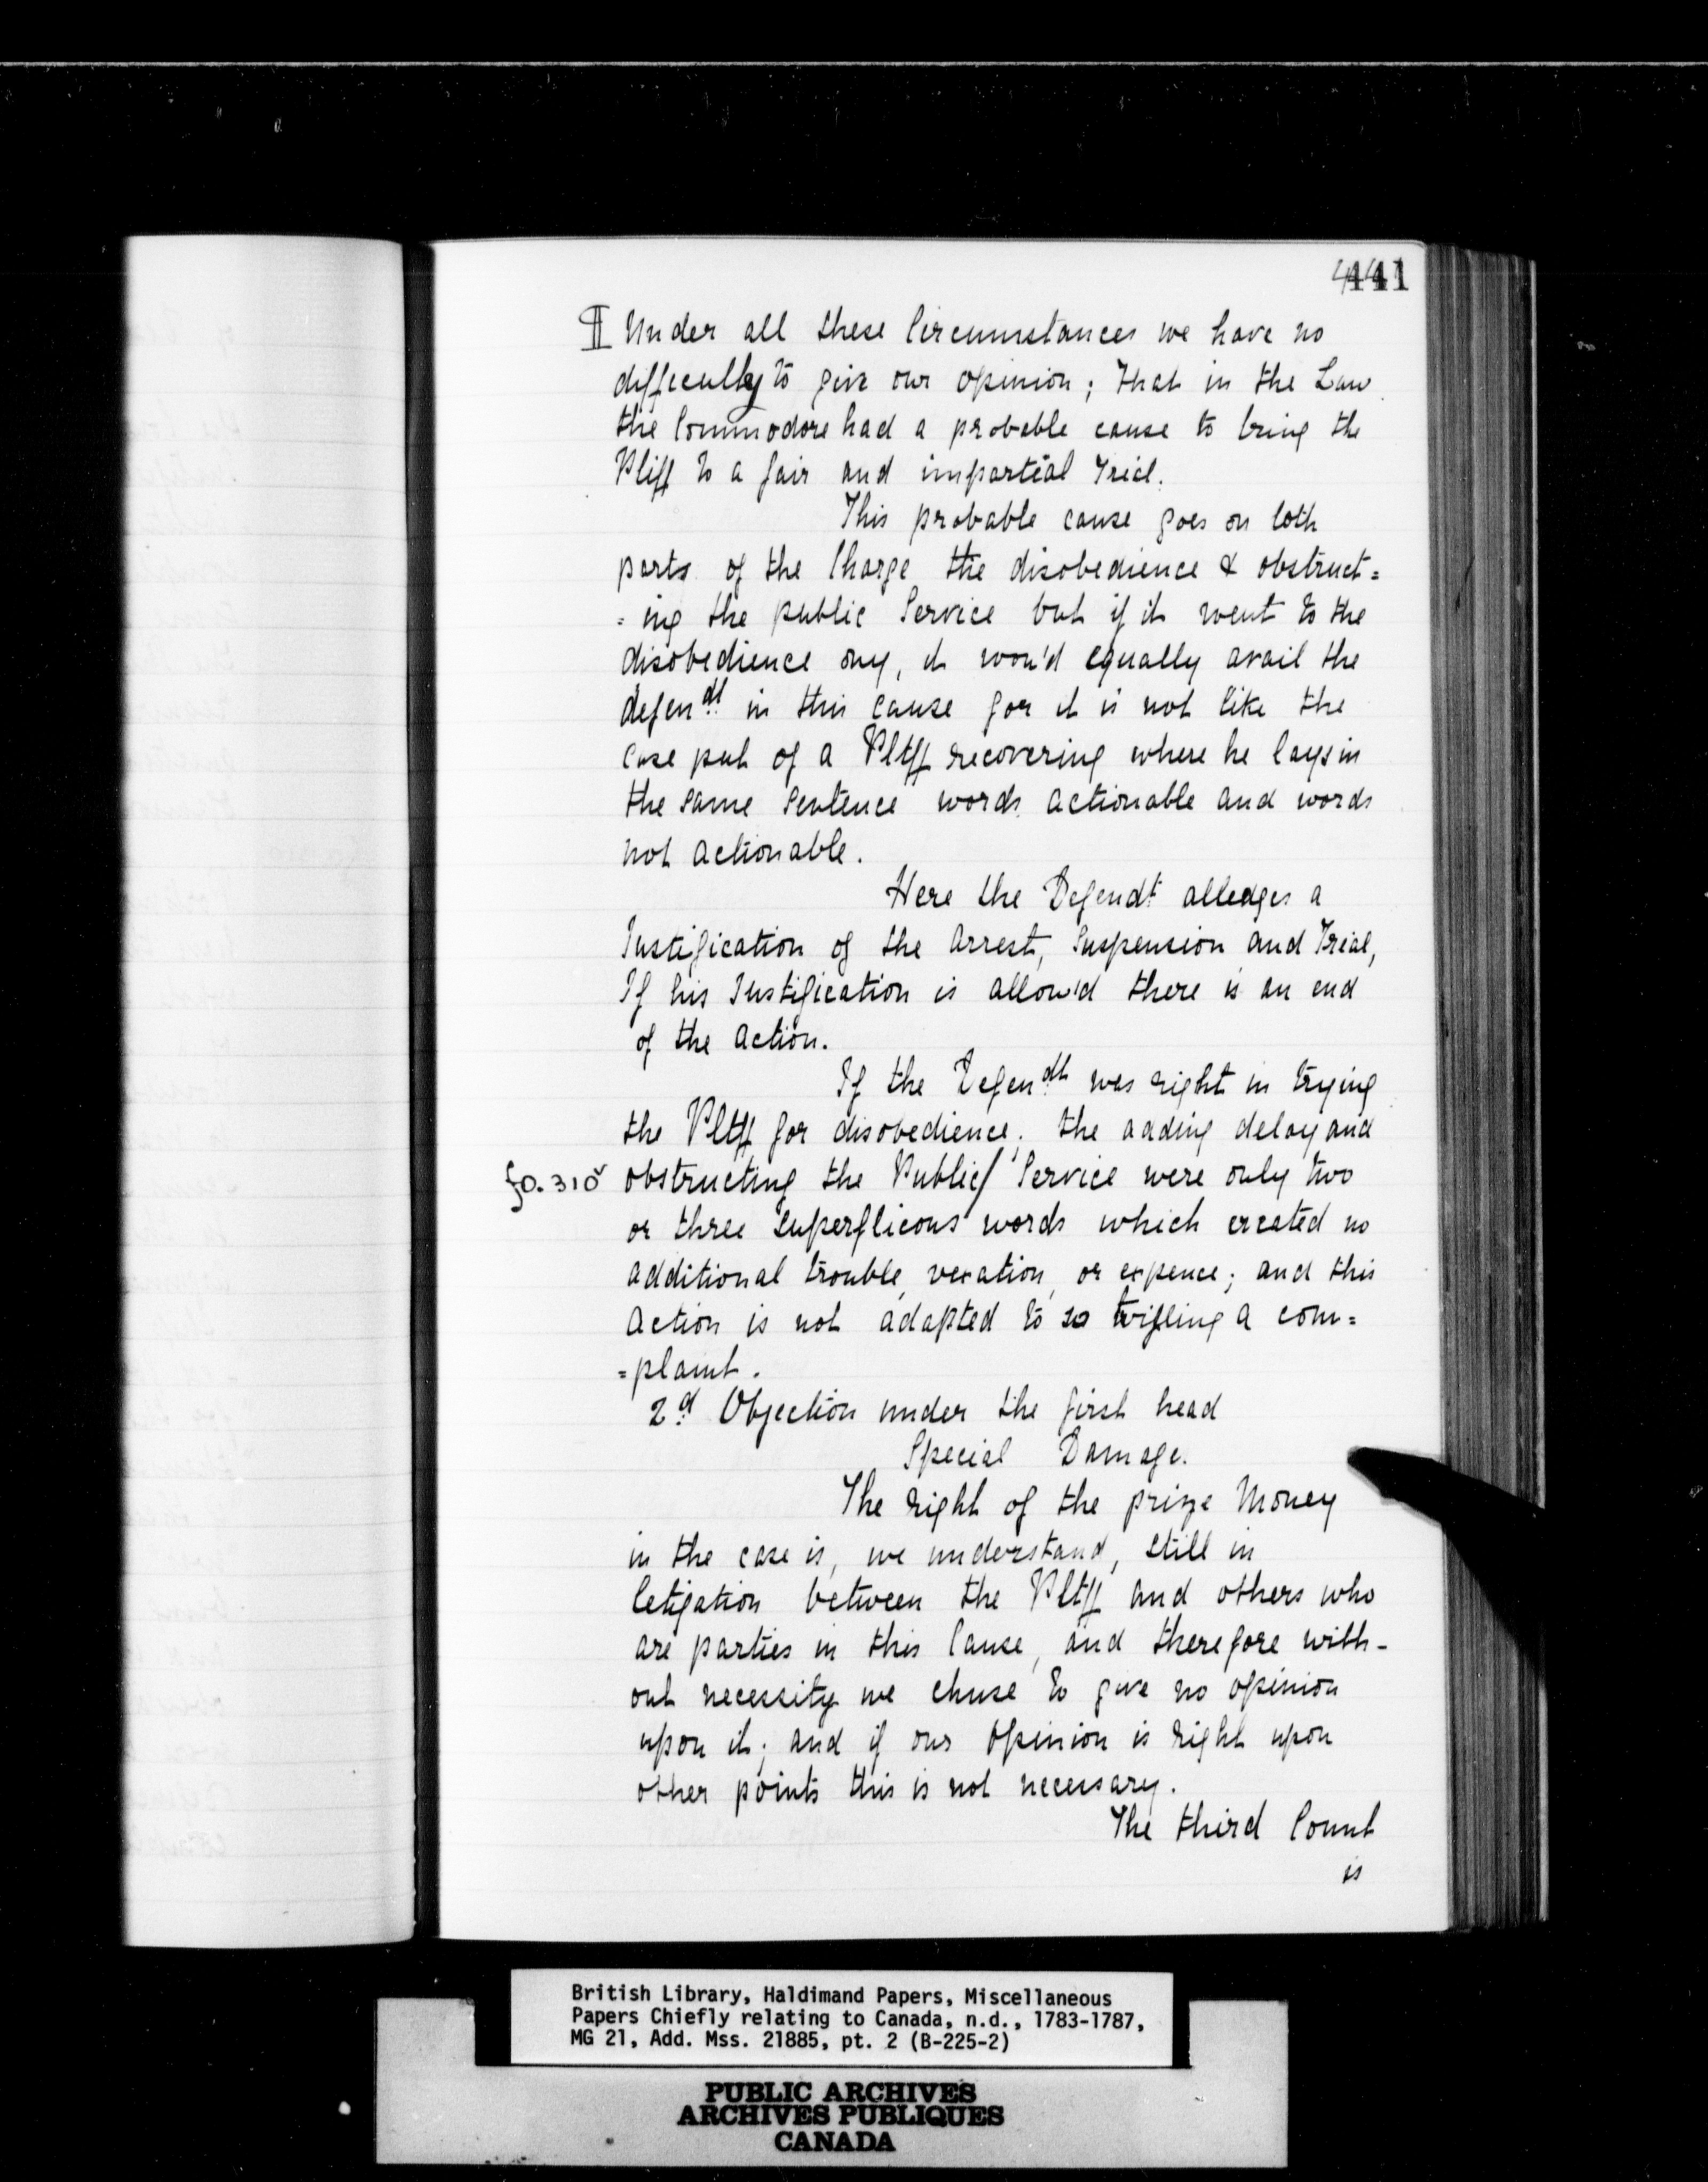 441
¶ Under all these Circumstances we have no
difficulty to give our opinion; that in the Law
the Commodore had a probable cause to bring the
Pltff to a fair and impartial Trial.
This probable cause goes on both
parts of the Charge the disobedience & obstruct=
=ing the public Service but if it went to the
disobedience ony, it wou'd equally avail the
defendt in this cause for it is not like the
case put of a Pltff recovering where he lays in
the same Sentence words actionable and words
not actionable.
Here the Defendt alledges a
Justification of the Arrest, Suspension and Trial,
If his Justification is allow'd there is an end
of the Action.
If the Defendt was right in trying
the Pltff for disobedience; the adding delay and
fo. 310v obstructing the Public/ Service were only two
or three superflicous words which created no
additional trouble, vexation, or expence; and this
Action is not adapted to so trifling a com=
=plaint.
2d Objection under the first head
Special Damage.
The right of the prize Money
in the case is, we understand, still in
letigation between the Pltff and others who
are parties in this Cause, and therefore with-
out necessity we chuse to give no opinion
upon it; and if our Opinion is right upon
other points this is not necessary.
The third Count
is
British Library, Haldimand Papers, Miscellaneous
Papers Chiefly relating to Canada, n.d., 1783-1787,
MG 21, Add. Mss. 21885, pt. 2 (B-225-2)
PUBLIC ARCHIVES
ARCHIVES PUBLIQUES
CANADA